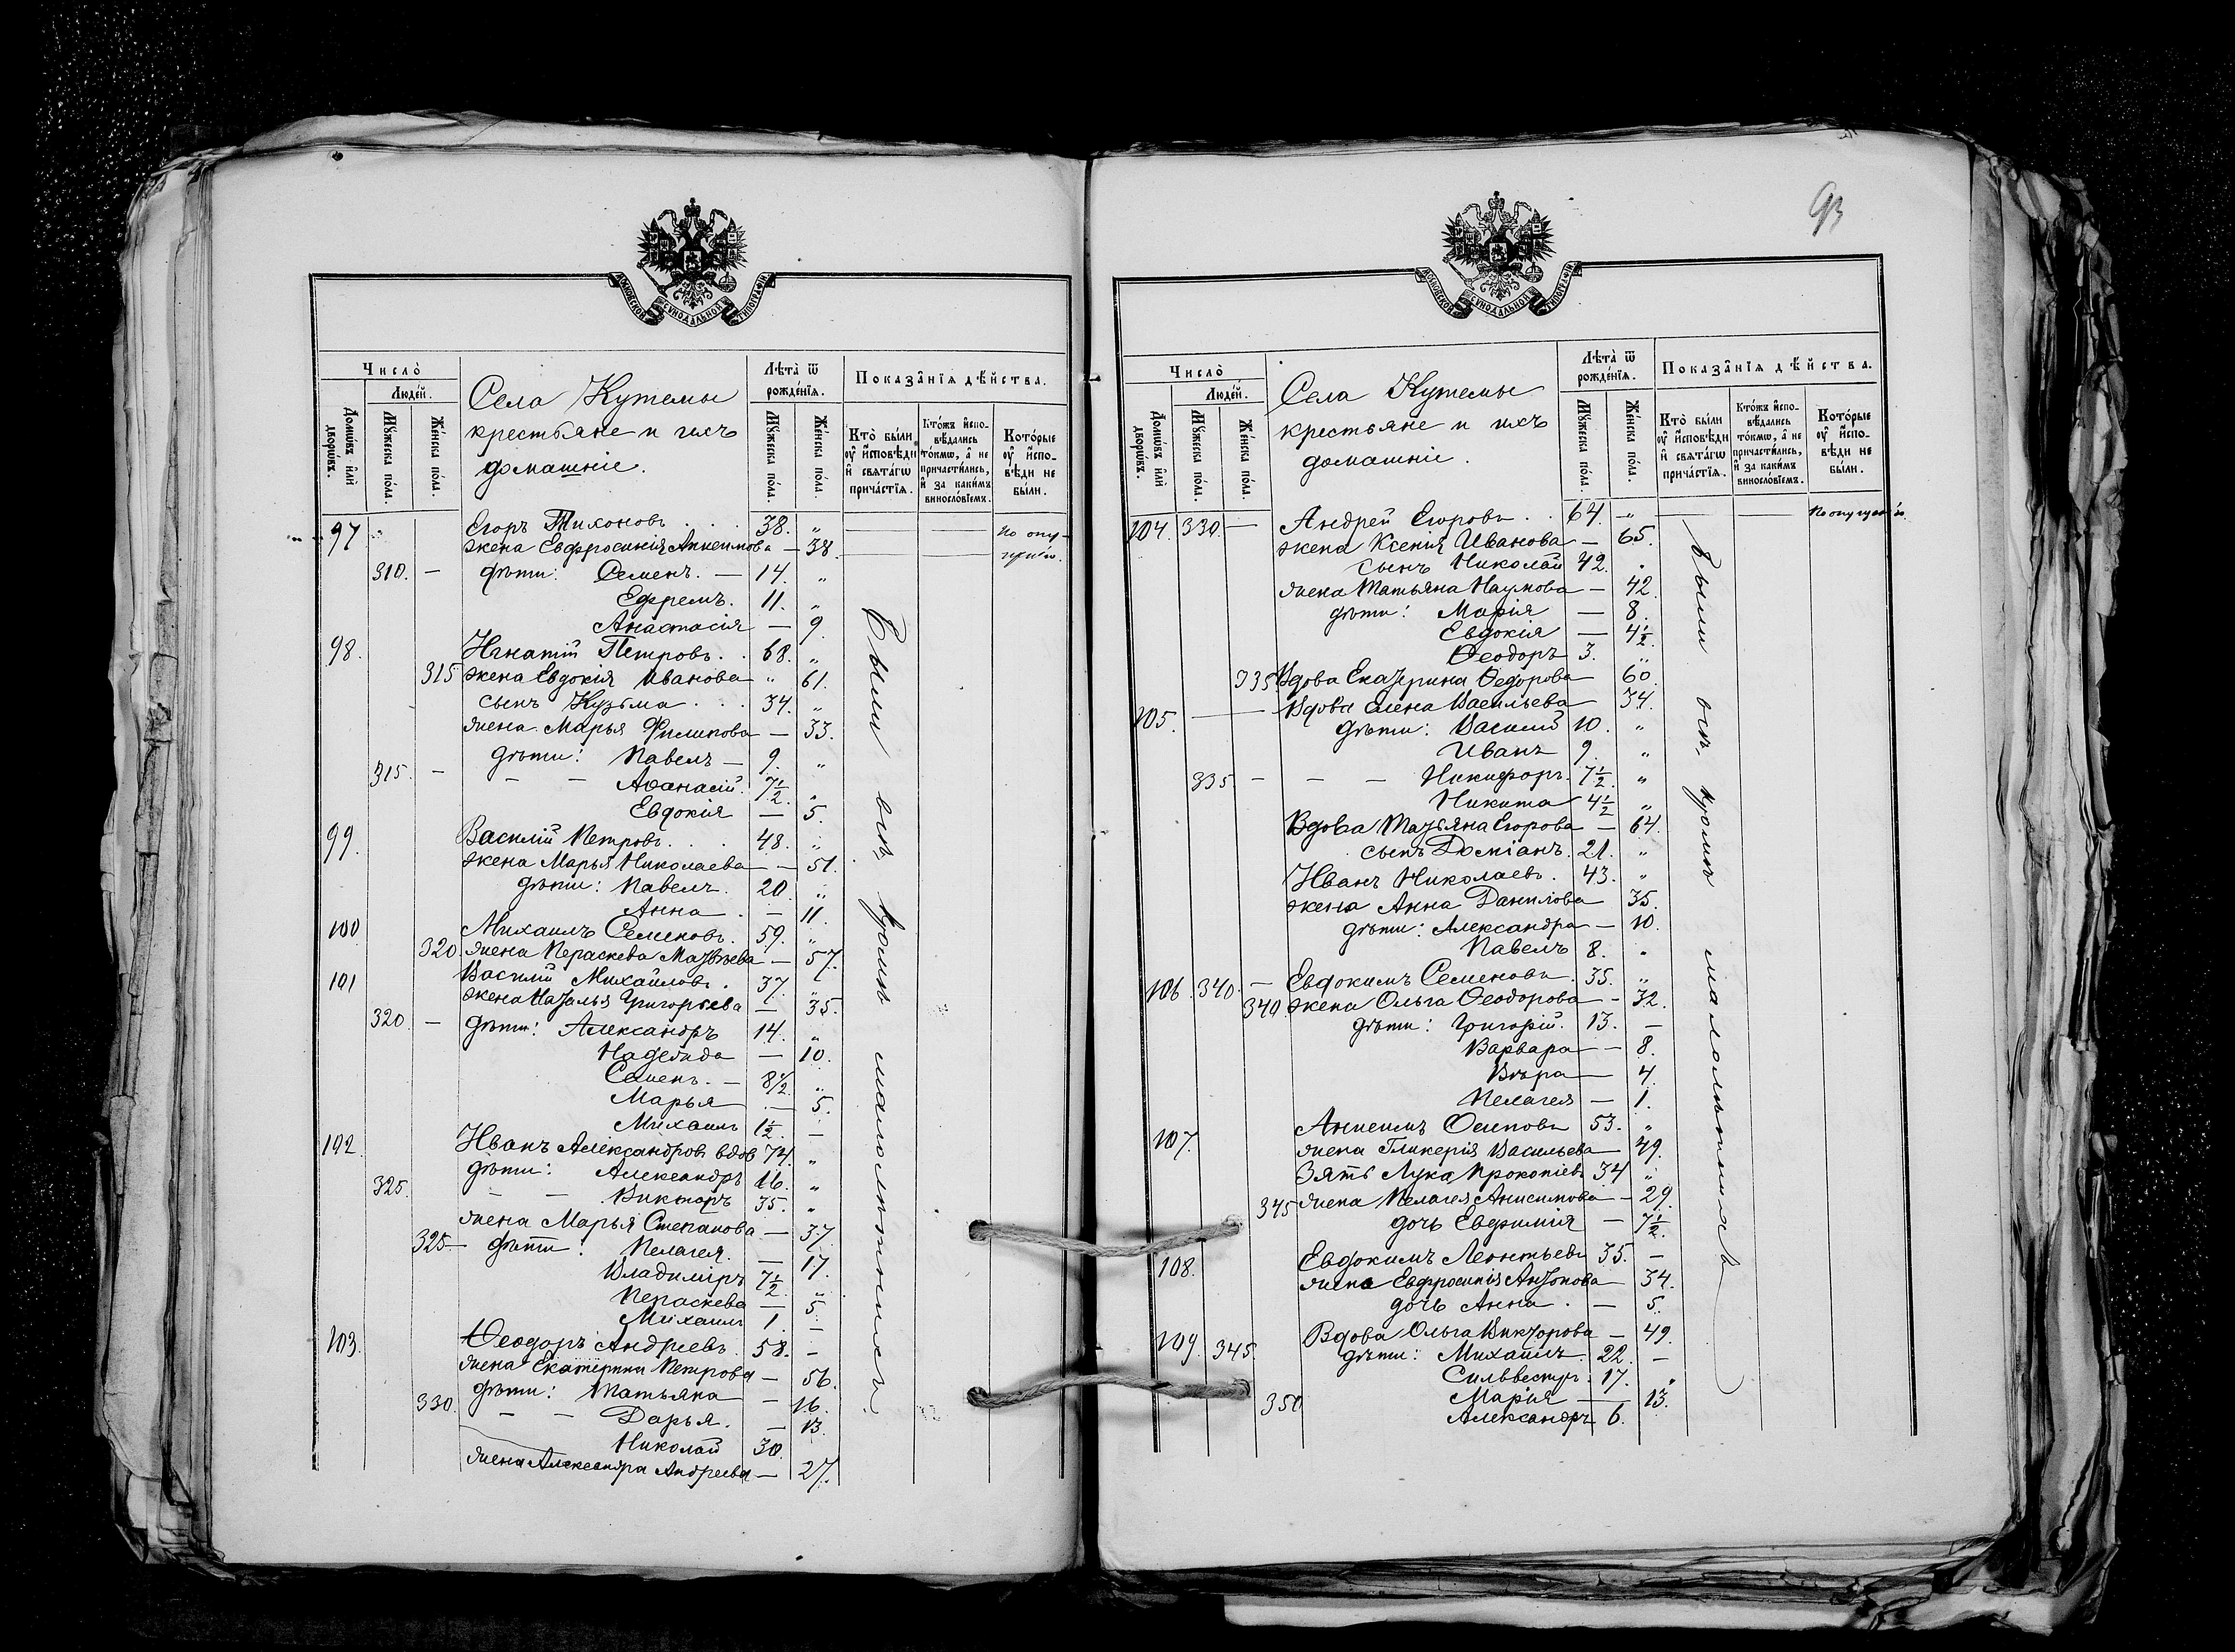 МОСКОВСКОЙ СѴНОДАЛЬНОЙ ТИПОГРАФІИ
Число̀
Людей.
Домѡвъ илѝ дворѡвъ.
Мꙋжеска пола.
Женска пола.
Села Кутемы
крестьяне и ихъ
домашніе.
Лѣта̀ ѿ рожденїѧ.
Мꙋжеска пола.
Женска пола.
Показанїѧ дѣйства.
Кто̀ были ᲂу҆ исповѣди и свѧтагѡ причастїѧ.
Ктожъ исповѣдались токмѡ, а не причастились, и за какимъ винословїемъ.
Которые ᲂу҆ исповѣди не были.
97 Егоръ Тихоновъ . . . 38. „ По опу-
жена Евфросинія Анисимова — 38. щенію.
310. — дѣти: Семенъ. — 14. „
Ефремъ. 11. „
Анастасія — 9.
98. Игнатій Петровъ . . 68. „
315 жена Евдокія Иванова „ 61.
сынъ Кузьма . . . 34. „
жена Марья Филипова — 33.
дѣти: Павелъ — 9. „
315. — — — Аѳанасій. 7½. „
Евдокія — 5.
99. Василій Петровъ . . . 48. „
жена Марья Николаева — 51.
дѣти: Павелъ. 20. „
Анна . — 11.
100 Михаилъ Семеновъ. 59. „
320. жена Параскева Матвѣева — 57.
101 Василій Михайловъ. 37. „
жена Наталья Григорьева — 35.
320. — дѣти: Александръ 14. „
Надежда — 10.
Семенъ. — 8½. „
Марья — 5.
Михаилъ 1½ —
102. Иванъ Александровъ вдов 74. „
дѣти: Александръ 16. „
325. — — Викторъ 35. „
жена Марья Степанова — 37.
325 — дѣти: Пелагея. — 17.
Владиміръ 7½. „
Параскева — 5.
Михаилъ 1. —
103. Ѳеодоръ Андреевъ. 58. —
жена Екатерина Петрова — 56.
дѣти: Татьяна — 16.
330. — — Дарья. — 13.
Николай 30.
жена Александра Андреева — 27.
Были всѣ, кромѣ малолѣтнихъ.
93
МОСКОВСКОЙ СѴНОДАЛЬНОЙ ТИПОГРАФІИ
Число̀
Людей.
Домѡвъ илѝ дворѡвъ.
Мꙋжеска пола.
Женска пола.
Села Кутемы
крестьяне и ихъ
домашніе.
Лѣта̀ ѿ рожденїѧ.
Мꙋжеска пола.
Женска пола.
Показанїѧ дѣйства.
Кто̀ были ᲂу҆ исповѣди и свѧтагѡ причастїѧ.
Ктожъ исповѣдались токмѡ, а не причастились, и за какимъ винословїемъ.
Которые ᲂу҆ исповѣди не были.
104. 330. — Андрей Егоровъ . . 64. „ По опущенію
жена Ксенія Иванова — 65.
сынъ Николай 42. „
жена Татьяна Наумова — 42.
дѣти: Марія — 8.
Евдокія — 4½.
Ѳеодоръ 3. „
335 Вдова Екатерина Ѳедорова 60.
105. — Вдова Елена Васильева 34.
дѣти: Василій 10. „
Иванъ 9. „
335. — — — Никифоръ. 7½. „
Никита 4½ „
Вдова Татьяна Егорова — 64.
сынъ Доміанъ. 21. „
Иванъ Николаевъ. 43. „
жена Анна Данилова 35.
дѣти: Александра — 10.
Павелъ 8. „
106. 340. — Евдокимъ Семеновъ. 35. „
340 жена Ольга Ѳеодорова — 32.
дѣти: Григорій. 13. —
Варвара — 8.
Вѣра — 4.
Пелагея — 1.
107. Анисимъ Осиповъ 53. „
жена Гликерія Васильева 49.
Зять Лука Прокопіевъ 34 „
345 жена Пелагея Анисимова — 29.
дочь Евфимія — 7½.
108. Евдокимъ Леонтьевъ 35. —
жена Евфросинія Антонова 34.
дочь Анна . — 5.
109. 345. Вдова Ольга Викторова — 49.
дѣти: Михаилъ. 22. —
Сильвестръ. 17. „
350 Марія — 13.
Александръ 6.
Были всѣ, кромѣ малолѣтнихъ